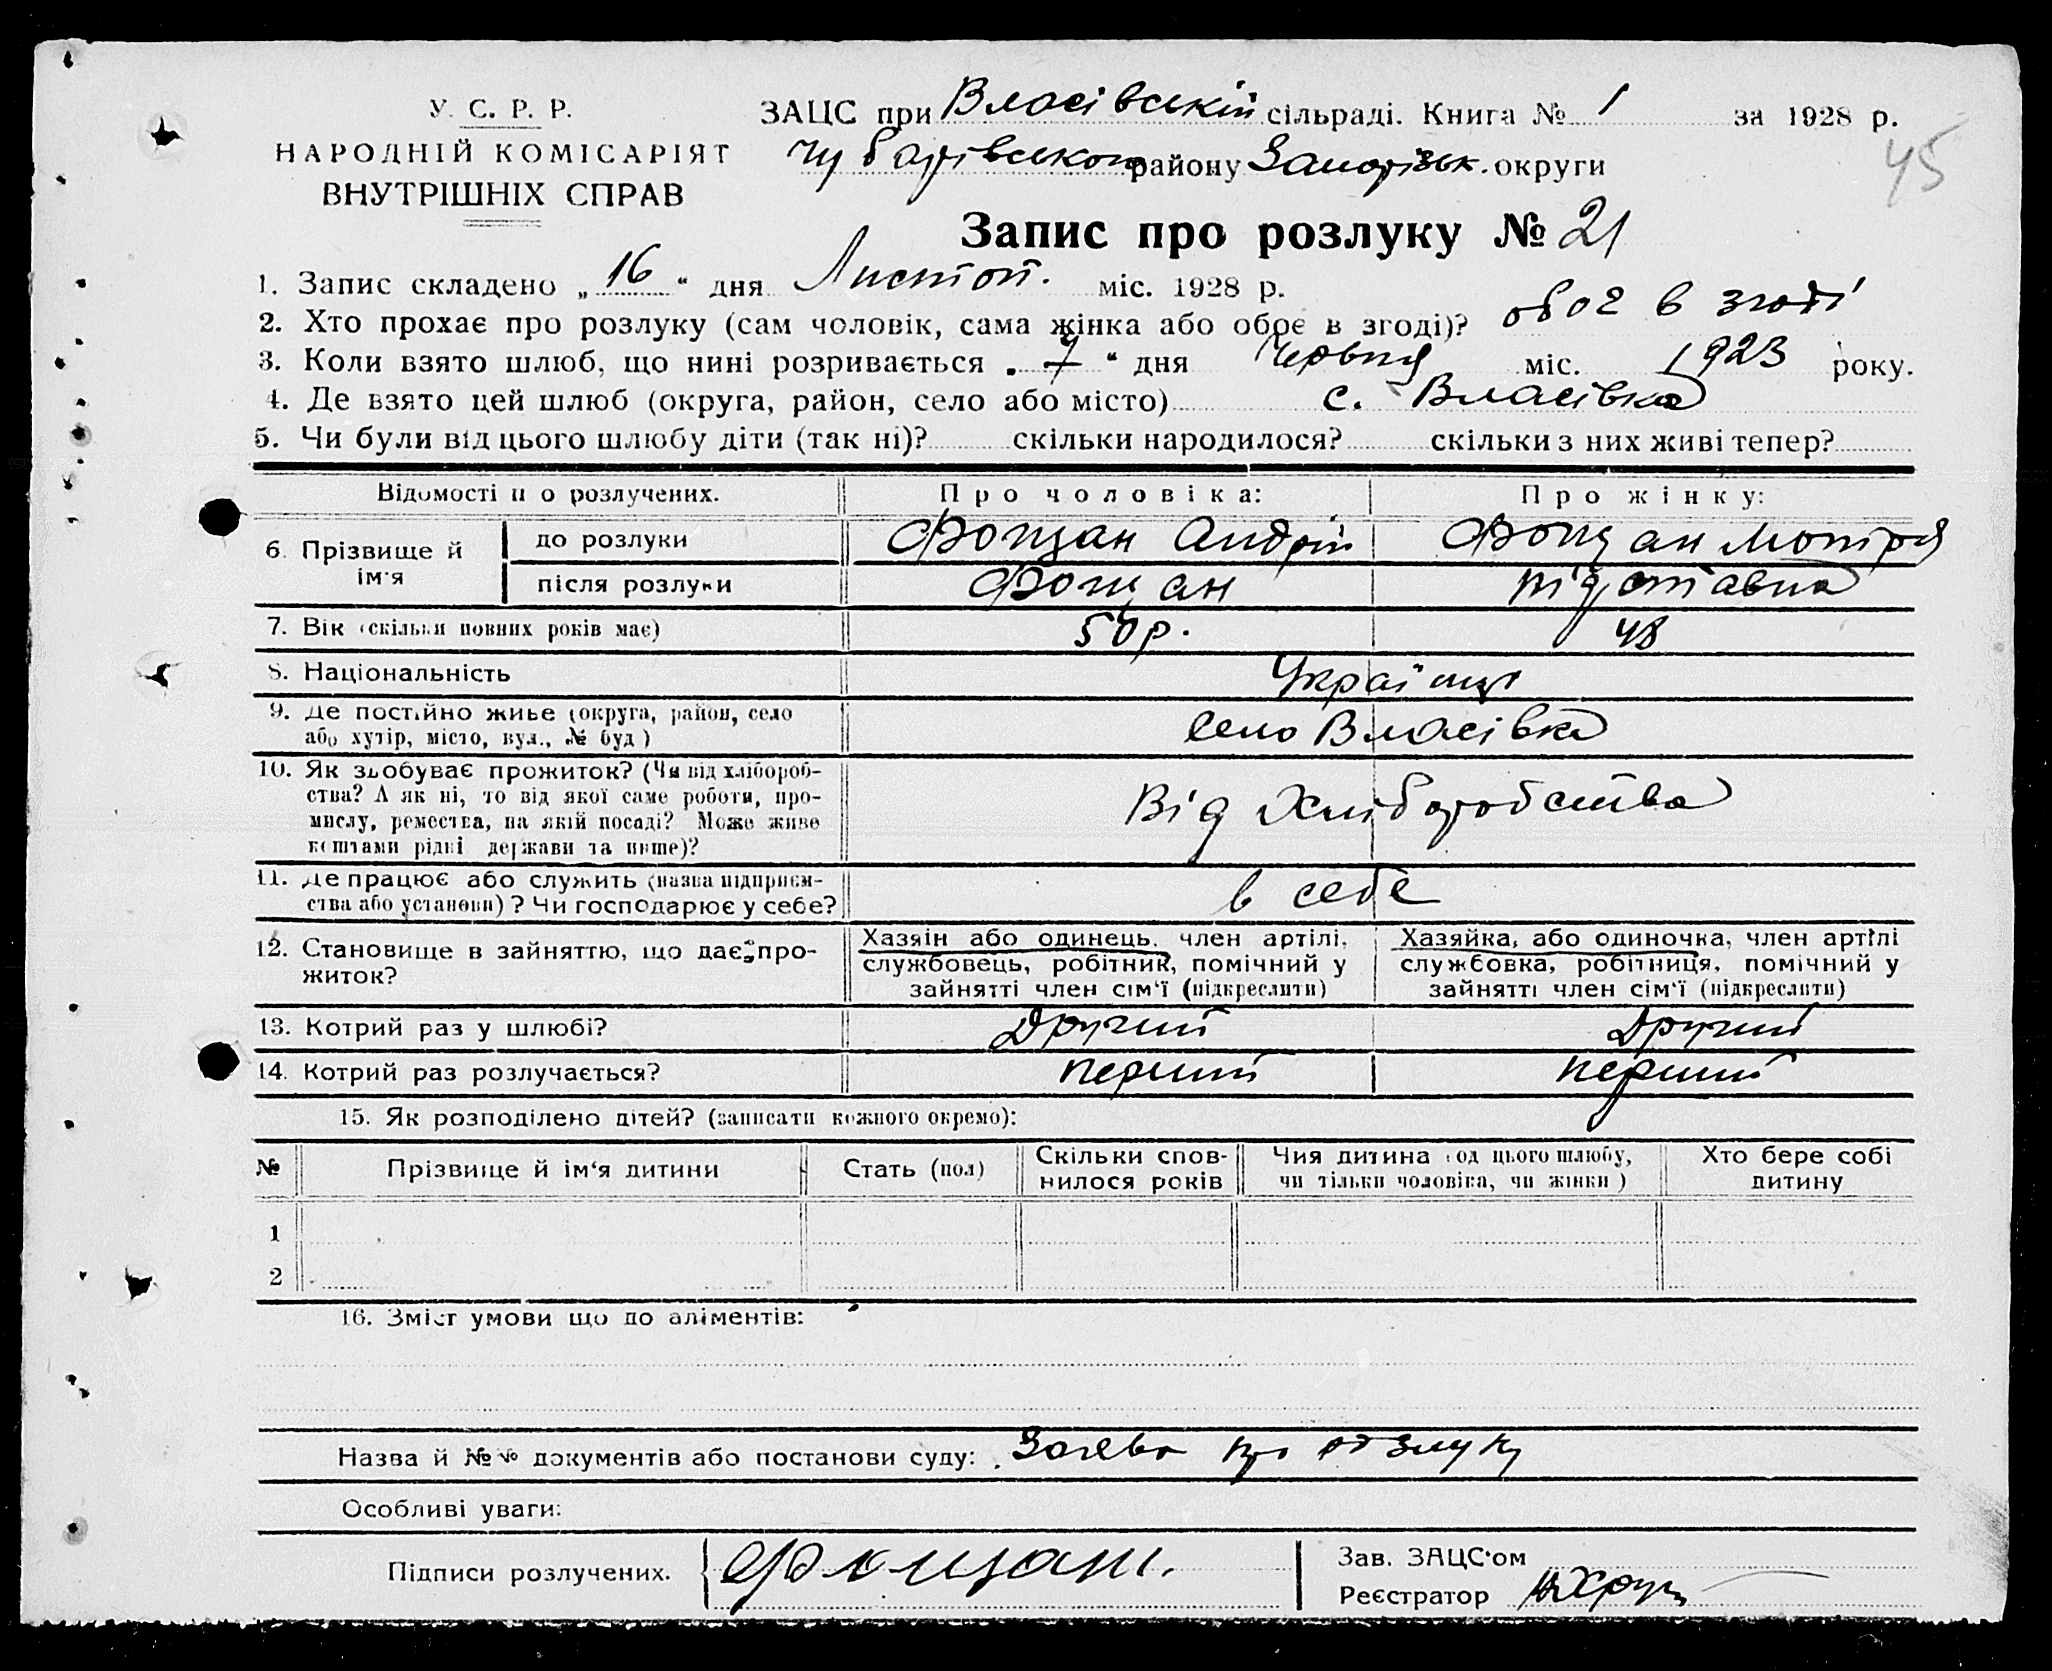 У. С. Р. Р.
НАРОДНІЙ КОМІСАРІЯТ
ВНУТРІШНІХ СПРАВ
ЗАЦС при Власівській сільраді. Книга № 1 за 1928 р.
Чубарівського району Запоріжськ. округи
45
Запис про розлуку № 21
1. Запис складено „16“ дня Листоп. міс. 1928 р.
2. Хто прохає про розлуку (сам чоловік, сама жінка або обоє в згоді)? обоє в згоді
3. Коли взято шлюб, що нині розривається „7“ дня Червня міс. 1923 року.
4. Де взято цей шлюб (округа, район, село або місто) с. Власівка
5. Чи були від цього шлюбу діти (так ні)? скільки народилося? скільки з них живі тепер?
Відомості п о розлучених. Про чоловіка: Про жінку:
6. Прізвище й ім'я до розлуки Фоpщан Андрій Фоpщан Мотіря
після розлуки Фоpщан Підставна
7. Вік (скільки повних років має) 50 р. 48
8. Національність Українці
9. Де постійно живе (округа, район, село
або хутір, місто, вул., № буд) село Власівка
10. Як здобуває прожиток? (Чи від хлібороб-
ства? А як ні, то від якої саме роботи, про-
мислу, ремества, на якій посаді? Може живе
коштами рідні держави та инше)? Від Хліборобства
11. Де працює або служить (назва підприєм-
ства або установи)? Чи господарює у себе? в себе
12. Становище в зайняттю, що дає про-
житок?
Хазяїн або одинець, член артілі,
службовець, робітник, помічний у
зайнятті член сім'ї (підкреслити)
Хазяйка, або одиночка, член артілі
службовка, робітниця, помічний у
зайнятті член сім'ї (підкреслити)
13. Котрий раз у шлюбі? Другий Другий
14. Котрий раз розлучається? перший перший
15. Як розподілено дітей? (записати кожного окремо):
№ Прізвище й ім'я дитини Стать (пол) Скільки спов-
нилося років Чия дитина (од цього шлюбу,
чи тільки чоловіка, чи жінки) Хто бере собі
дитину
1
2
16. Зміст умови що до аліментів:
Назва й №№ документів або постанови суду: Заява про розлуку
Особливі уваги:
Підписи розлучених.
Зав. ЗАЦС'ом
Реєстратор